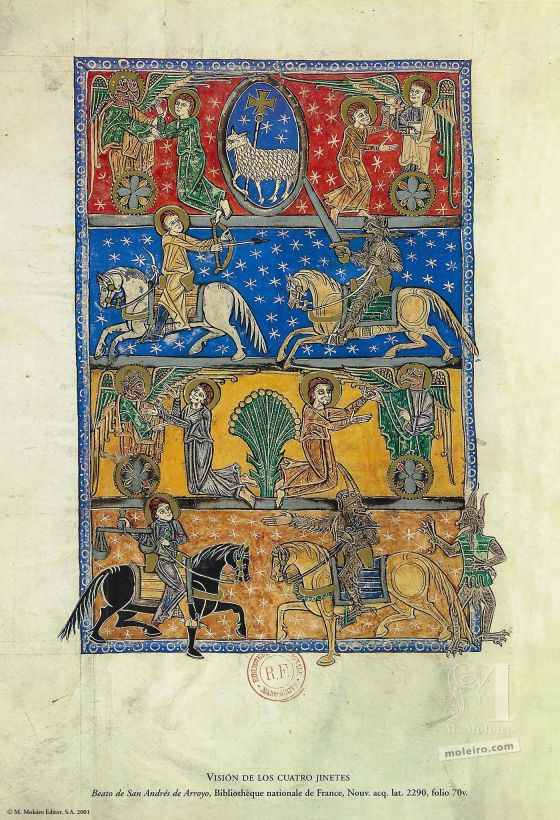 R.F.
MANUSCRITS
M. Moleiro
moleiro.com
VISIÓN DE LOS CUATRO JINETES
Beato de San Andrés de Arroyo, Bibliothèque nationale de France, Nouv. acq. lat. 2290, folio 70v.
© M. Moleiro Editor, S.A. 2001